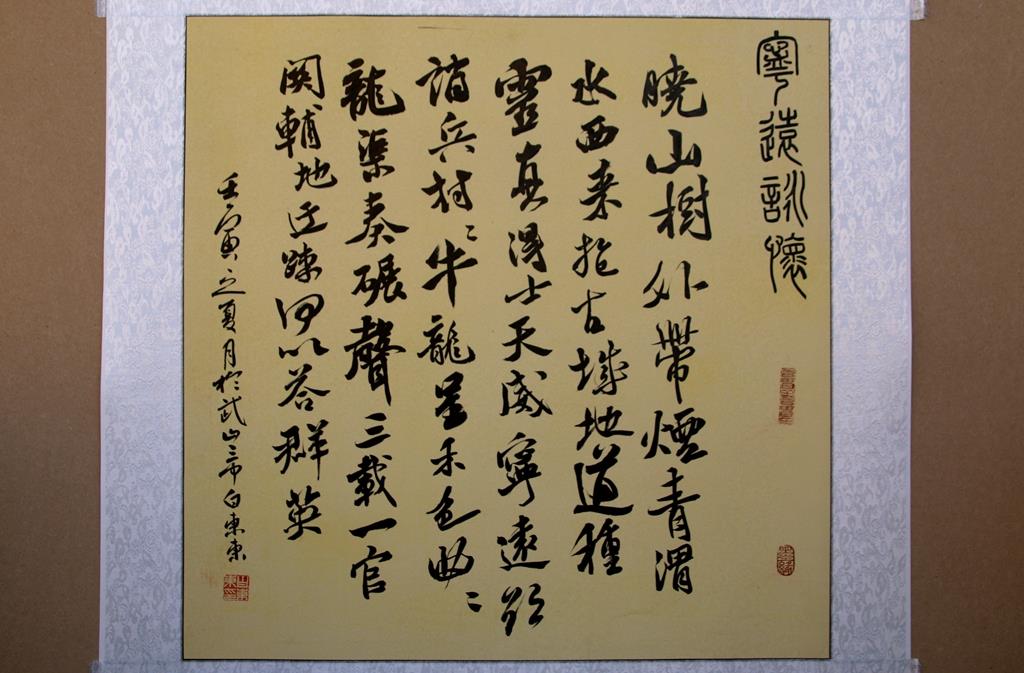 寧遠詠懷
曉山樹外帶煙青渭
水西来抱古城地道種
靈真得士天威寧遠欲
銷兵村々牛龍呈禾色
龍渠奏碾聲三載一官
關輔地迂疎何以答群英
壬寅之夏月於武山白東東